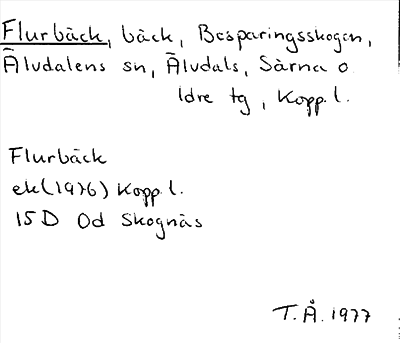 Flurbäck, bäck, Besparingsskogen,
Älvdalens sn, Älvdals, Särna o
Idre tg, Kopp. l.
Flurbäck
ek (1976) Kopp. l.
15 D 0d Skognäs
T. Å. 1977